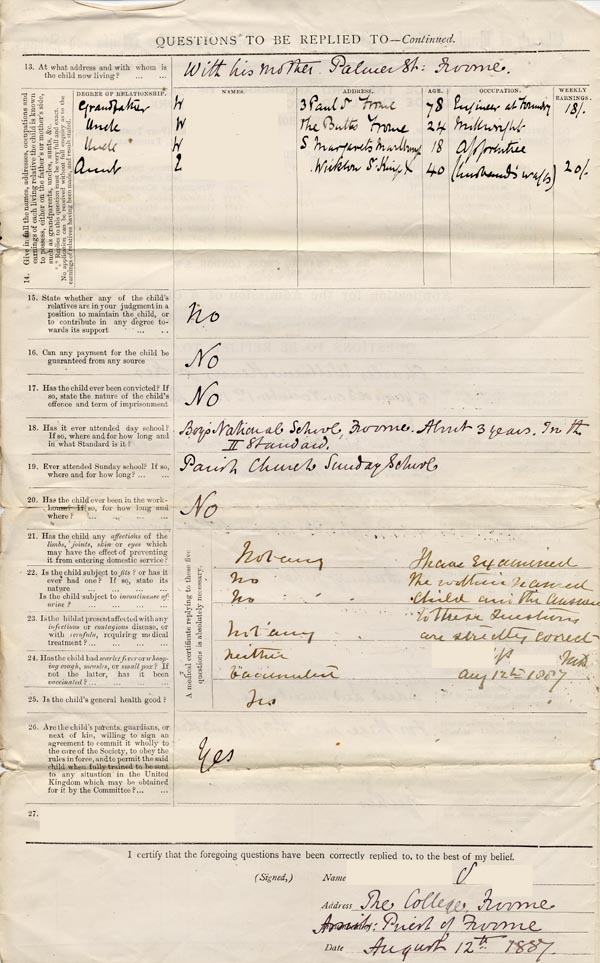 QUESTIONS TO BE REPLIED TO—Continued.
13. At what address and with whom is
the child now living? ... ...
With his mother. Palmer St: Froome.
14. Give in full the names, addresses, occupations and
earnings of each living relative the child is known
to possess, either on the father's or mother's side,
such as grandparents, uncles, aunts, &c.
*** Replies to this question must be very full and exact.
No application can be received without full inquiry as to the
earnings of relatives having been made, and result stated.
DEGREE OF RELATIONSHIP. NAMES. ADDRESS. AGE. OCCUPATION. WEEKLY EARNINGS.
Grandfather W 3 Paul St Frome 78 Engineer at Foundry 18/-
Uncle W The Butts Frome 24 Millwright
Uncle W S. Margarets Marlboro 18 Apprentice
Aunt 40 (husband's wages) 20/-
15. State whether any of the child's
relatives are in your judgment in a
position to maintain the child, or
to contribute in any degree to-
wards its support ... ...
No
16. Can any payment for the child be
guaranteed from any source
No
17. Has the child ever been convicted? If
so, state the nature of the child's
offence and term of imprisonment
No
18. Has it ever attended day school?
If so, where and for how long and
in what Standard is it? ...
Boys National School, Froome. About 3 years. In th
II Standard.
19. Ever attended Sunday school? If so,
where and for how long? ... ...
Parish Church Sunday School
20. Has the child ever been in the work-
house? If so, for how long and
where? ... ... ... ...
No
A medical certificate replying to these five
questions is absolutely necessary.
21. Has the child any affections of the
limbs, joints, skin or eyes which
may have the effect of preventing
it from entering domestic service?
Not any
22. Is the child subject to fits? or has it
ever had one? If so, state its
nature ... ... ... ...
Is the child subject to incontinence of
urine? ... ... ... ...
No
No
23. Is the child at present affected with any
infectious or contagious disease, or
with scrofula, requiring medical
treatment? ... ... ... ...
Not any
24. Has the child had scarlet fever or whoop-
ing cough, measles, or small pox? If
not the latter, has it been
vaccinated? ... ... ... ...
neither
Vaccinated
25. Is the child's general health good?
I have Examined
the within named
child and the answers
to these Questions
are strictly correct
Aug 12th 1887
26. Are the child's parents, guardians, or
next of kin, willing to sign an
agreement to commit it wholly to
the care of the Society, to obey the
rules in force, and to permit the said
child when fully trained to be sent
to any situation in the United
Kingdom which may be obtained
for it by the Committee? ... ...
Yes
27.
I certify that the foregoing questions have been correctly replied to, to the best of my belief.
(Signed,) Name
Address The College, Froome
Priest of Froome
Date August 12th 1887.